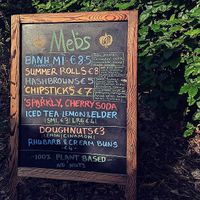 Mebs
BANH MI - €8.5
SUMMER ROLLS €8
HASHBROWNS €5
CHIPSTICKS €7
SPARKLY, CHERRY SODA
ICED TEA LEMON & ELDER
DOUGHNUTS €3
RHUBARB & CREAM BUNS
€4
-100% PLANT BASED-